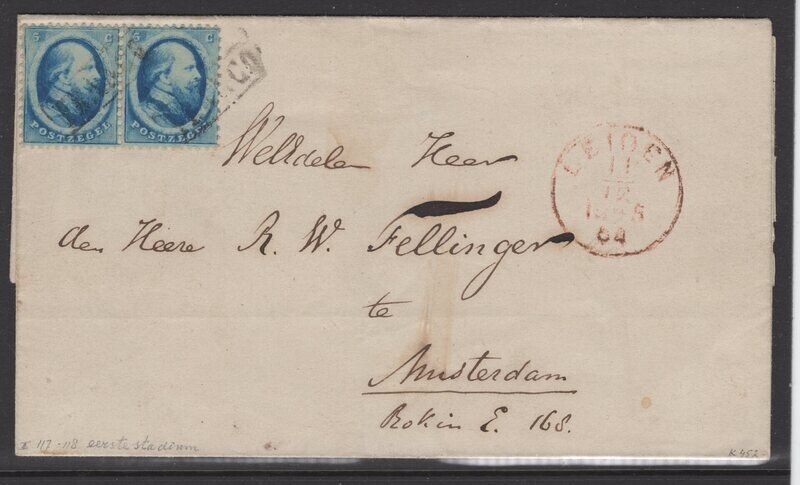 5 C 5 C
POSTZEGEL POSTZEGEL
FRANCO
LEIDEN
11
12
64
WelEdelen Heer
den Heere R. W. Fellinger
te
Amsterdam
Rokin E. 168.
117-118 eerste stadium
K 452